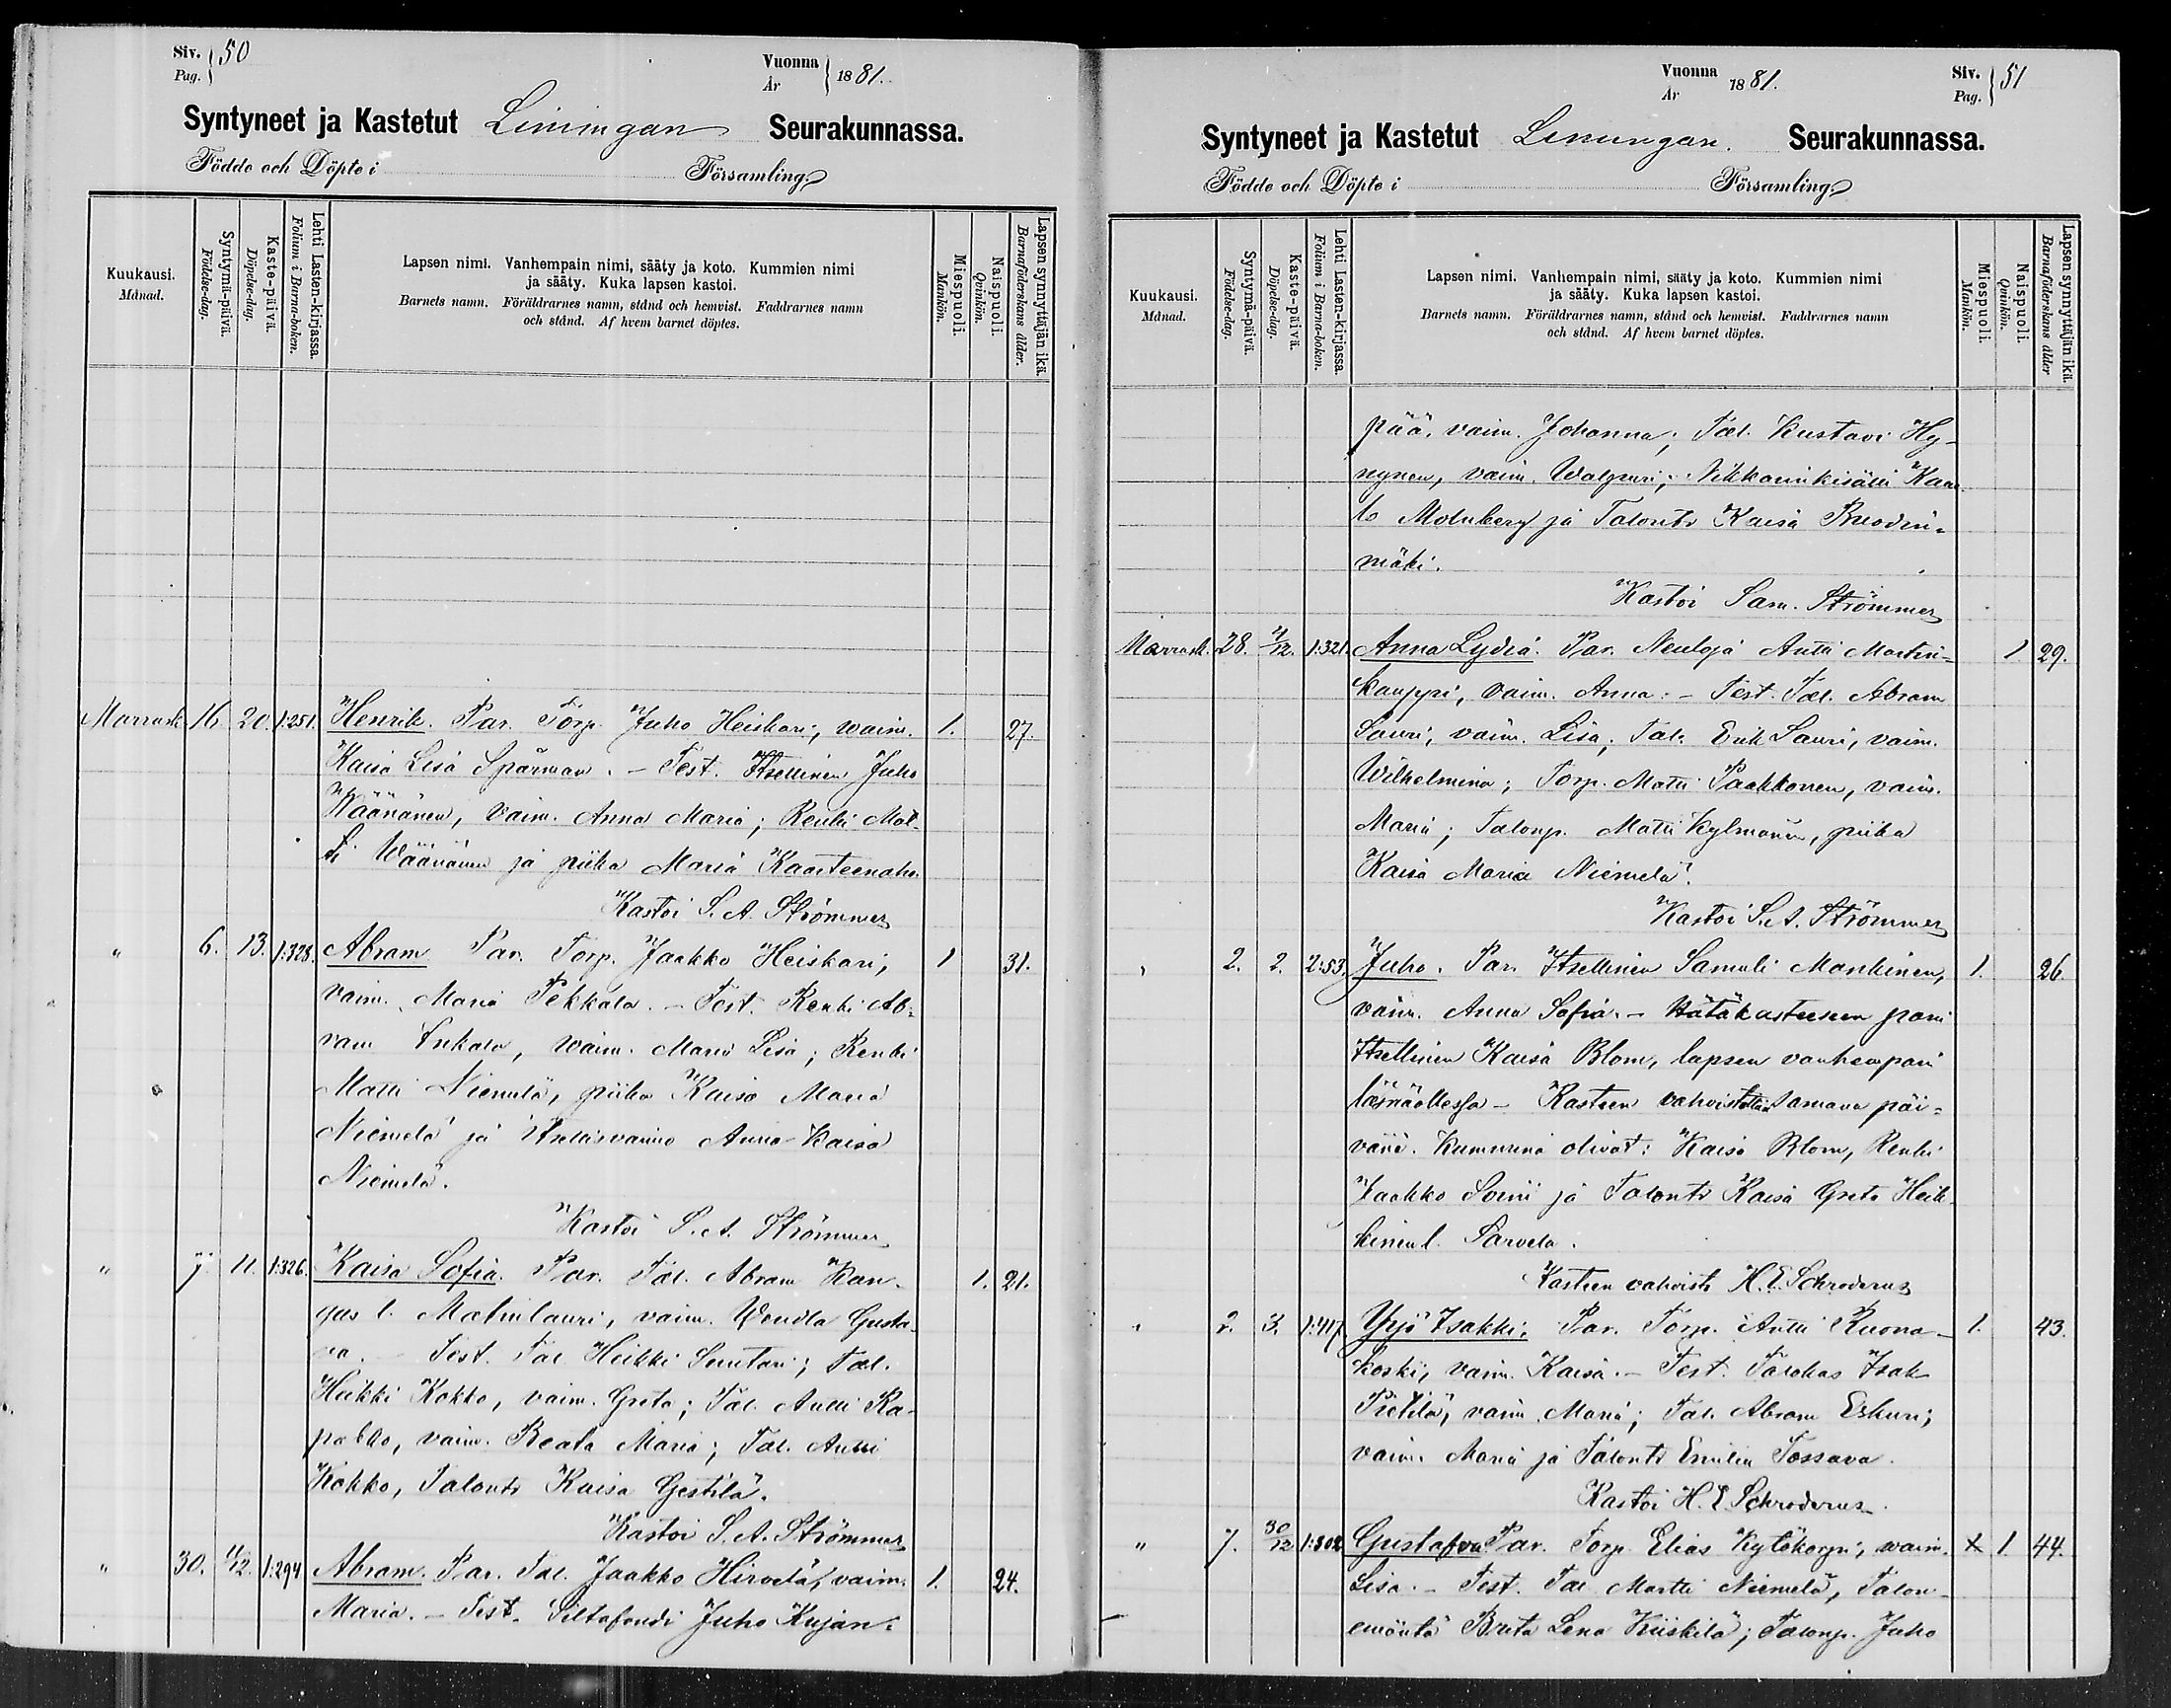 Siv. 50
Pag.
Vuonna
År 1881.
Syntyneet ja Kastetut Limingan Seurakunnassa.
Födde och Döpte i Församling
Kuukausi.
Månad.
Syntymä-päivä.
Födelse-dag.
Kaste-päivä.
Döpelse-dag.
Lehti Lasten-kirjassa.
Folium i Barna-boken.
Lapsen nimi. Vanhempain nimi, sääty ja koto. Kummien nimi
ja sääty. Kuka lapsen kastoi.
Barnets namn. Föräldrarnes namn, stånd och hemvist. Faddrarnes namn
och stånd. Af hvem barnet döptes.
Miespuoli.
Mankön.
Naispuoli.
Qvinkön.
Lapsen synnyttäjän ikä.
Barnaföderskans ålder.
Marrask. 16. 20. 1:251. Henrik. Par. Torp. Juho Heiskari, waim. 1. 27.
Kaisa Lisa Spärman. – Test. Itsellinen Juho
Wäänänen, vaim. Anna Maria; Renki Mat-
ti Wäänänen ja piika Maria Kaarteenaho
Kastoi S. A. Strömmer
" 6. 13. 1:328. Abram Par. Torp. Jaakko Heiskari, 1 31.
vaim. Maria Pekkala. – Test. Renki Ab-
ram Inkala, waim. Maria Lisa; Renki
Matti Niemelä, piika Kaisa Maria
Niemelä ja Anna Kaisa
Niemelä.
Kastoi S. A. Strömmer
" 7. 11. 1:326. Kaisa Sofia. Par. Tal. Abram Kan-
gas l. Matinlauri, vaim. Wendla Gusta- 1. 21.
va. – Test. Tal. Heikki Tal.
Heikki Kokko, vaim. Greta; Tal. Antti Ra-
pakko, vaim. Beata Maria; Tal. Antti
Kokko, Talontr Kaisa Gestilä.
Kastoi S. A. Strömmer
" 30. 4/12. 1:294 Abram. Par. Tal. Jaakko Hirvelä, vaim. 1. 24.
Maria. – Test. Siltafoudi Juho Kujan-
Vuonna
År 1881.
Siv. 51
Pag.
Syntyneet ja Kastetut Limingan. Seurakunnassa.
Födde och Döpte i Församling
Kuukausi.
Månad.
Syntymä-päivä.
Födelse-dag.
Kaste-päivä.
Döpelse-dag.
Lehti Lasten-kirjassa.
Folium i Barna-boken.
Lapsen nimi. Vanhempain nimi, sääty ja koto. Kummien nimi
ja sääty. Kuka lapsen kastoi.
Barnets namn. Föräldrarnes namn, stånd och hemvist. Faddrarnes namn
och stånd. Af hvem barnet döptes.
Miespuoli.
Mankön.
Naispuoli.
Qvinkön.
Lapsen synnyttäjän ikä.
Barnaföderskans ålder
pää, vaim. Johanna; Tal. Kustavi Hy-
nynen, vaim. Walpuri; Nikkarinkisälli Kaar
lo Molnberg ja Talontr Kaisa
mäki.
Kastoi Sam. Strömmer
Marrask. 28. 4/12. 1:321. Anna Lydia. Par. Neuloja Antti Martin- 1. 29.
kauppi, vaim. Anna. – Test. Tal. Abram
Lauri, vaim. Lisa; Tal. Erik Lauri, vaim.
Wilhelmina; Torp. Matti Paakkonen, vaim.
Maria; Talonp. Matti Kylmänen, piika
Kaisa Maria Niemelä.
Kastoi S. A. Strömmer
" 2. 2. 2:53. Juho. Par. Itsellinen Samuli Mankinen, 1. 26.
vaim. Anna Sofia. – Hätäkasteeseen pani
Itsellinen Kaisa Blom, lapsen vanhempain
läsnäollessa – Kasteen vahvistettiin samana päi-
vänä. Kummina olivat: Kaisa Blom, Renki
Jaakko Soini ja Talontr Kaisa Greta Heik-
kinen l. Sarvela.
Kasteen vahvisti H. E. Schroderus
" 2. 3. 1:417. Yrjö Isakki. Par. Torp. Antti Ruona- 1. 43.
koski, vaim. Kaisa. – Test. Talokas Isak
Pietilä, vaim. Maria; Tal. Abram Eskuri,
vaim. Maria ja Talontr Emilia Tossava.
Kastoi H. E. Schroderus.
" 7. 30/12 1:302 Gustafva. Par. Torp. Elias Kytökorpi, waim. x 1. 44.
Lisa. – Test. Tal. Martti Niemelä, Talon-
emäntä Brita Lena Kiiskilä; Talonp. Juho